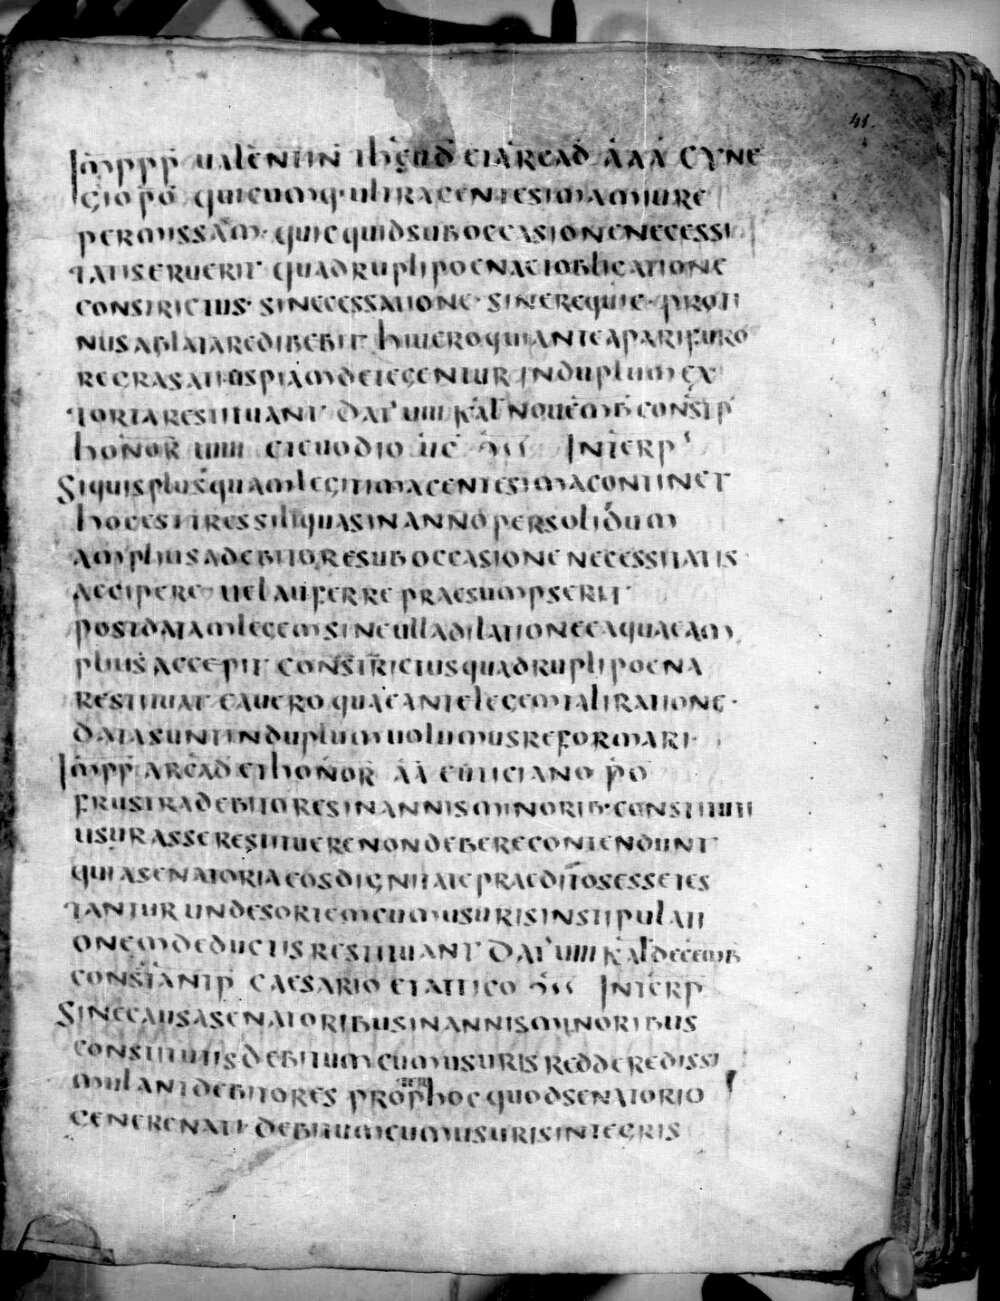 41.
Imppp ualentin theud et arcad aaa cyne
gio po quicumq· ultra centesimam iure
permissam· quicquid sub occasione necessi
tatis eruerit quadrupli poenae obligatione
constrictus· sine cessatione· sine requie· proti
nus ablata redibebit hii uero qui antea pari furo
re grasati uspiam detegentur in duplum ex
torta restituant dat uiii kal nouemb constp
honor uc et euodio uc conss Interp
Siquis plus quam legitima centesima continet
hoc est tres siliquas in anno per solidum
amplius a debitore sub occasione necessitatis
accipere uel auferre praesumpserit
post datam legem sine ulla dilatione ea quae am
plius accepit constrictus quadrupli poena
restituat ea uero quae ante legem tali ratione·
data sunt in duplum uolumus reformari·
Impp arcad et honor aa euticiano po
frustra debitores in annis minorib· constituti
usuras se restituere non debere contendunt
qui a senatoria eos dignitate praeditos esse tes
tantur unde sortem cum usuris in stipulati
onem deductis restituant dat uiiii kal decemb
constantp caesario et attico conss Interp
Sine causa senatoribus in annis minoribus
constitutis debitum cum usuris reddere dissi
mulant debitores propter hoc quod senatorio
genere nati debitum cum usuris integris